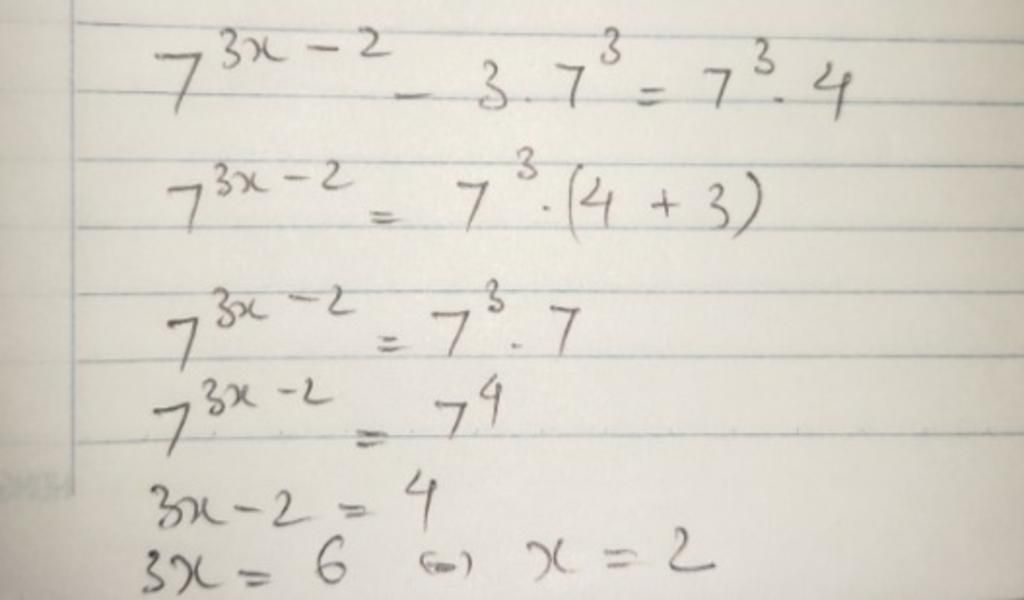 7^{3x-2} - 3.7^3 = 7^3.4
7^{3x-2} = 7^3.(4+3)
7^{3x-2} = 7^3.7
7^{3x-2} = 7^4
3x-2 = 4
3x = 6 ⇔ x = 2